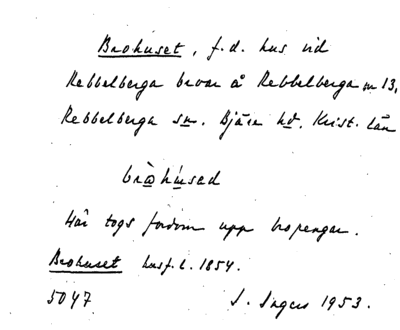 Brohuset, f.d. hus vid
Rebbelberga kvar å Rebbelberga nr 13,
Rebbelberga sn. Bjäre hd. Krist. län
bròhúsəd
Här togs fordom upp bropengar.
Brohuset husf.l. 1854.
5047 I. Ingers 1953.